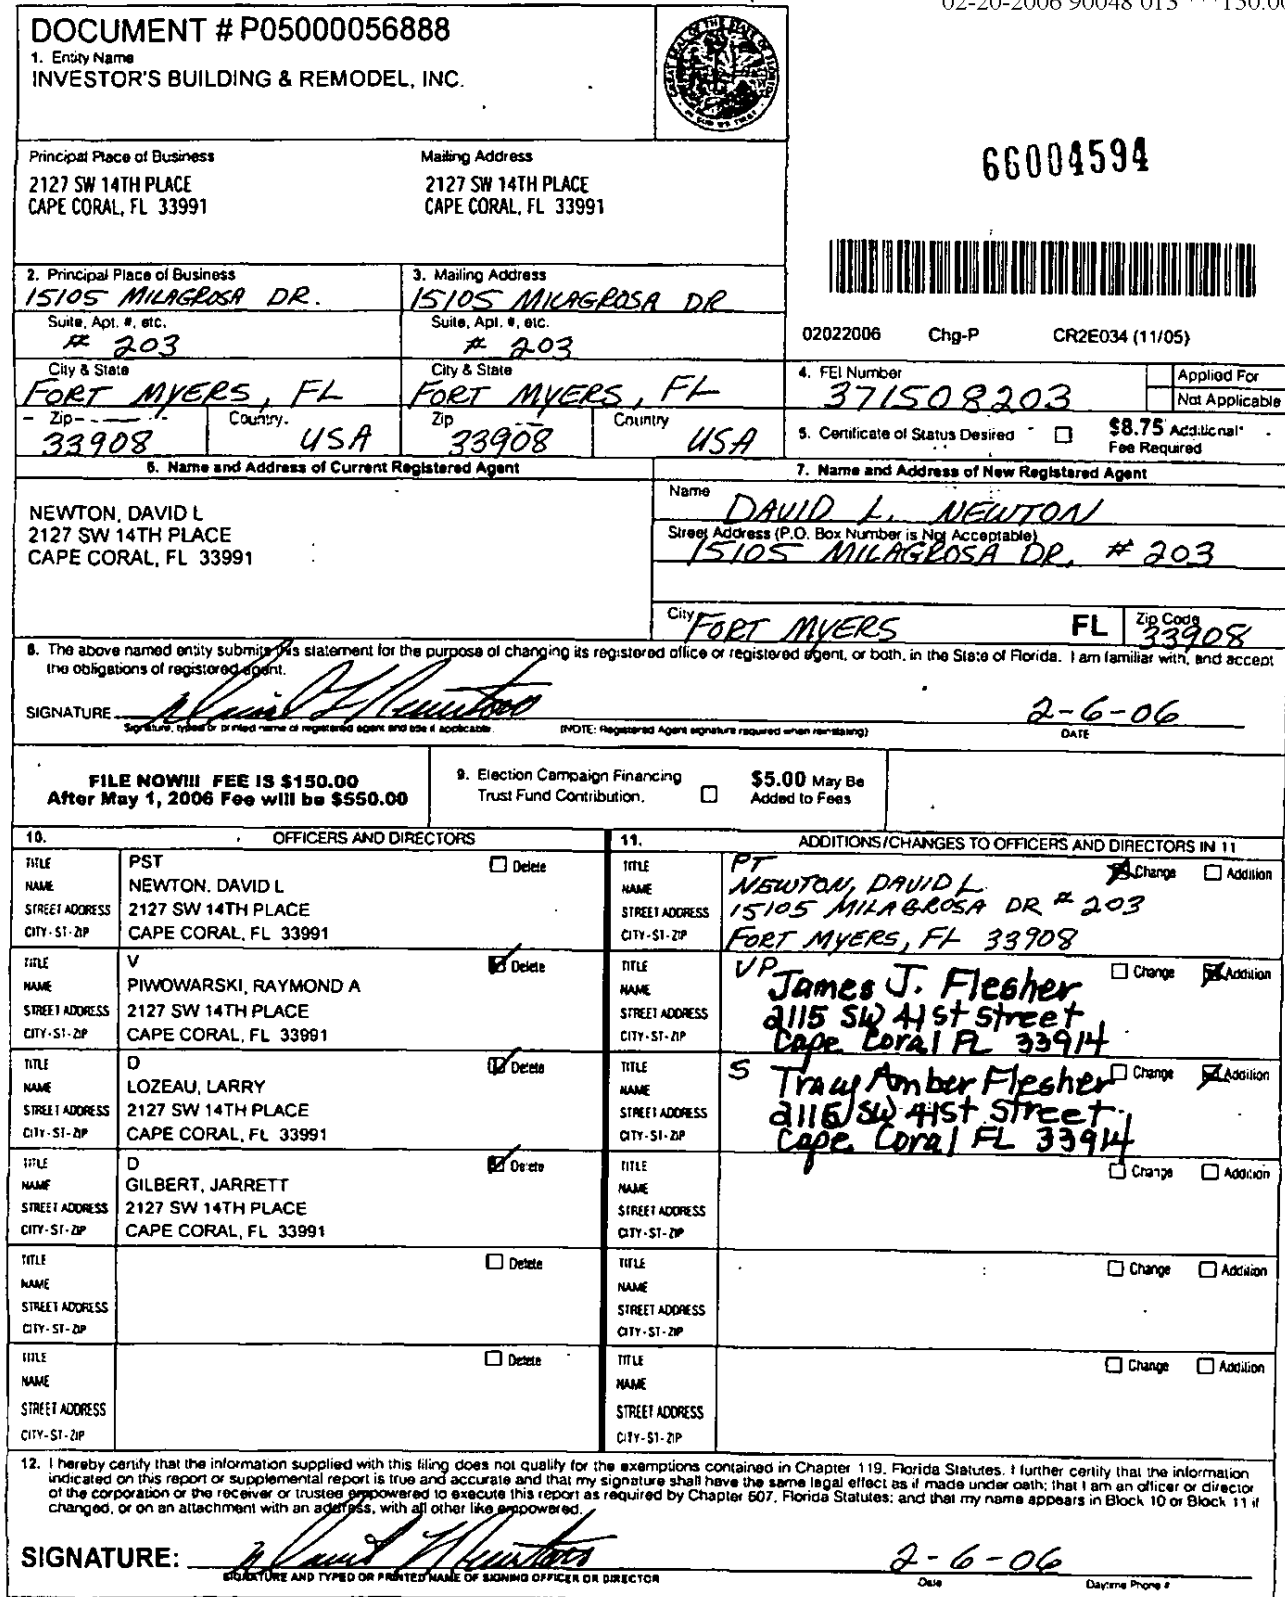 02-20-2006 90048 013 ***150.00
DOCUMENT # P05000056888
1. Entity Name
INVESTOR'S BUILDING & REMODEL, INC.
Principal Place of Business
2127 SW 14TH PLACE
CAPE CORAL, FL 33991
Mailing Address
2127 SW 14TH PLACE
CAPE CORAL, FL 33991
66004594
2. Principal Place of Business
15105 MILAGROSA DR.
Suite, Apt. #, etc.
# 203
City & State
FORT MYERS, FL
Zip
33908
Country
USA
3. Mailing Address
15105 MILAGROSA DR
Suite, Apt. #, etc.
# 203
City & State
FORT MYERS, FL
Zip
33908
Country
USA
02022006 Chg-P CR2E034 (11/05)
4. FEI Number
371508203
Applied For
Not Applicable
5. Certificate of Status Desired $8.75 Additional
Fee Required
6. Name and Address of Current Registered Agent
NEWTON, DAVID L
2127 SW 14TH PLACE
CAPE CORAL, FL 33991
7. Name and Address of New Registered Agent
Name
DAVID L. NEWTON
Street Address (P.O. Box Number is Not Acceptable)
15105 MILAGROSA DR. # 203
City FORT MYERS FL Zip Code 33908
8. The above named entity submits this statement for the purpose of changing its registered office or registered agent, or both, in the State of Florida. I am familiar with, and accept
the obligations of registered agent.
SIGNATURE David L Newton 2-6-06
Signature, typed or printed name of registered agent and title if applicable. (NOTE: Registered Agent signature required when reinstating) DATE
FILE NOW!!! FEE IS $150.00
After May 1, 2006 Fee will be $550.00
9. Election Campaign Financing
Trust Fund Contribution.
$5.00 May Be
Added to Fees
10. OFFICERS AND DIRECTORS
TITLE PST Delete
NAME NEWTON, DAVID L
STREET ADDRESS 2127 SW 14TH PLACE
CITY-ST-ZIP CAPE CORAL, FL 33991
TITLE V Delete
NAME PIWOWARSKI, RAYMOND A
STREET ADDRESS 2127 SW 14TH PLACE
CITY-ST-ZIP CAPE CORAL, FL 33991
TITLE D Delete
NAME LOZEAU, LARRY
STREET ADDRESS 2127 SW 14TH PLACE
CITY-ST-ZIP CAPE CORAL, FL 33991
TITLE D Delete
NAME GILBERT, JARRETT
STREET ADDRESS 2127 SW 14TH PLACE
CITY-ST-ZIP CAPE CORAL, FL 33991
TITLE Delete
NAME
STREET ADDRESS
CITY-ST-ZIP
TITLE Delete
NAME
STREET ADDRESS
CITY-ST-ZIP
11. ADDITIONS/CHANGES TO OFFICERS AND DIRECTORS IN 11
TITLE PT Change Addition
NAME NEWTON, DAVID L.
STREET ADDRESS 15105 MILAGROSA DR # 203
CITY-ST-ZIP FORT MYERS, FL 33908
TITLE VP Change Addition
NAME James J. Flesher
STREET ADDRESS 2115 SW 41st Street
CITY-ST-ZIP Cape Coral FL 33914
TITLE S Change Addition
NAME Tracy Amber Flesher
STREET ADDRESS 2115 SW 41st Street
CITY-ST-ZIP Cape Coral FL 33914
TITLE Change Addition
NAME
STREET ADDRESS
CITY-ST-ZIP
TITLE Change Addition
NAME
STREET ADDRESS
CITY-ST-ZIP
TITLE Change Addition
NAME
STREET ADDRESS
CITY-ST-ZIP
12. I hereby certify that the information supplied with this filing does not qualify for the exemptions contained in Chapter 119, Florida Statutes. I further certify that the information
indicated on this report or supplemental report is true and accurate and that my signature shall have the same legal effect as if made under oath; that I am an officer or director
of the corporation or the receiver or trustee empowered to execute this report as required by Chapter 607, Florida Statutes; and that my name appears in Block 10 or Block 11 if
changed, or on an attachment with an address, with all other like empowered.
SIGNATURE: David L Newton 2-6-06
SIGNATURE AND TYPED OR PRINTED NAME OF SIGNING OFFICER OR DIRECTOR Date Daytime Phone #